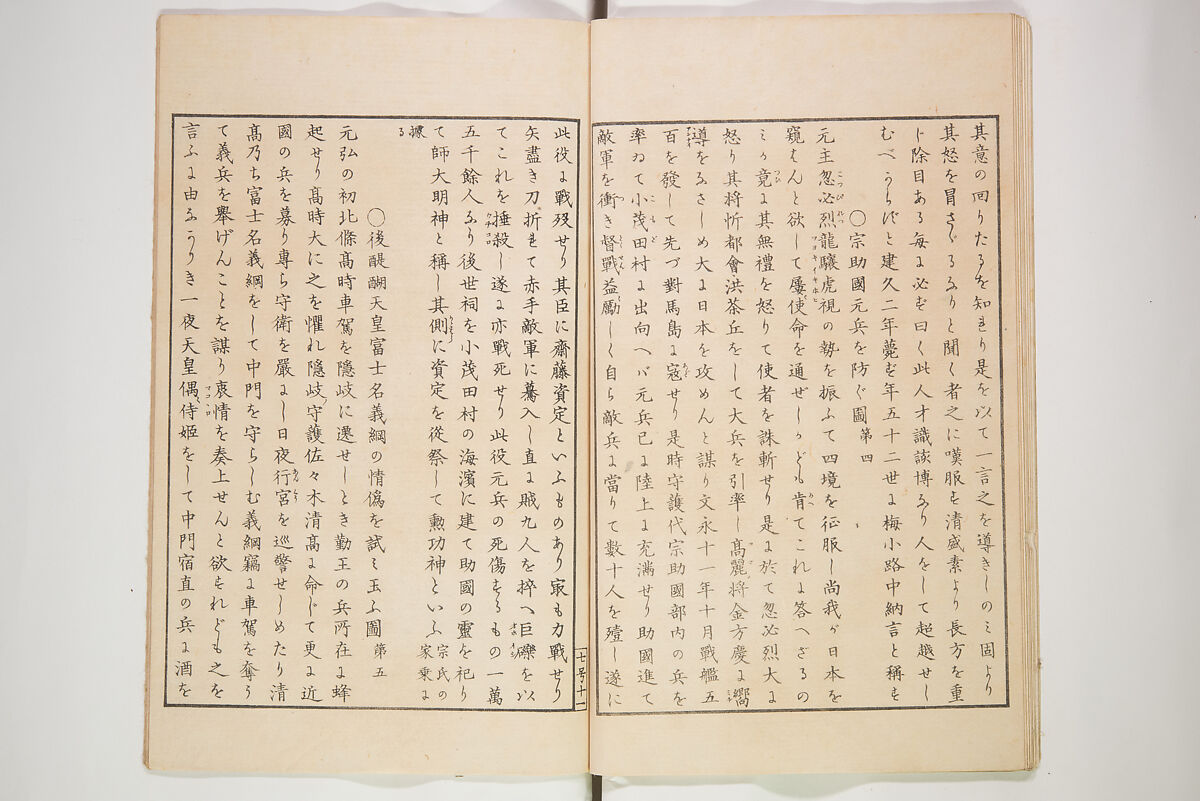 其意の回りたるを知れり是を以て一言之を導きしのミ固より
其怒を冒さゞるなりと聞く者之に嘆服す清盛素より長方を重
じ除目ある毎に必ず曰く此人才識該博なり人をして超越せし
むべからずと建久二年薨ず年五十二世に梅小路中納言と稱す
〇宗助國元兵を防ぐ圖 第四
元主忽必烈龍驤虎視の勢を振ふて四境を征服し尚我が日本を
窺はんと欲して屢使命を通ぜしかども肯てこれに答へざるの
ミか竟に其無禮を怒りて使者を誅斬せり是に於て忽必烈大に
怒り其将忻都會洪茶丘をして大兵を引率し髙麗将金方慶に嚮
導をなさしめ大に日本を攻めんと謀り文永十一年十月戰艦五
百を發して先づ對馬島に寇せり是時守護代宗助國部内の兵を
率ゐて小茂田村に出向へバ元兵已に陸上に充満せり助國進て
敵軍を衝き督戰益勵しく自ら敵兵に當りて数十人を殪し遂に
此役に戰歿せり其臣に齋藤資定といふものあり最も力戰せり
矢盡き刀折れて赤手敵軍に驀入し直に賊九人を捽へ巨礫を以
てこれを捶殺し遂に亦戰死せり此役元兵の死傷するもの一萬
五千餘人なり後世祠を小茂田村の海濱に建て助國の靈を祀り
て師大明神と稱し其側に資定を從祭して勲功神といふ 宗氏の家乗に
據る
〇後醍醐天皇富士名義綱の情偽を試ミ玉ふ圖 第五
元弘の初北條髙時車駕を隠岐に遷せしとき勤王の兵所在に蜂
起せり髙時大に之を懼れ隠岐守護佐々木清髙に命じて更に近
國の兵を募り專ら守衛を嚴にし日夜行宮を巡警せしめたり清
髙乃ち富士名義綱をして中門を守らしむ義綱竊に車駕を奪う
て義兵を舉げんことを謀り衷情を奏上せんと欲すれども之を
言ふに由なかりき一夜天皇偶侍姫をして中門宿直の兵に酒を
七号十一